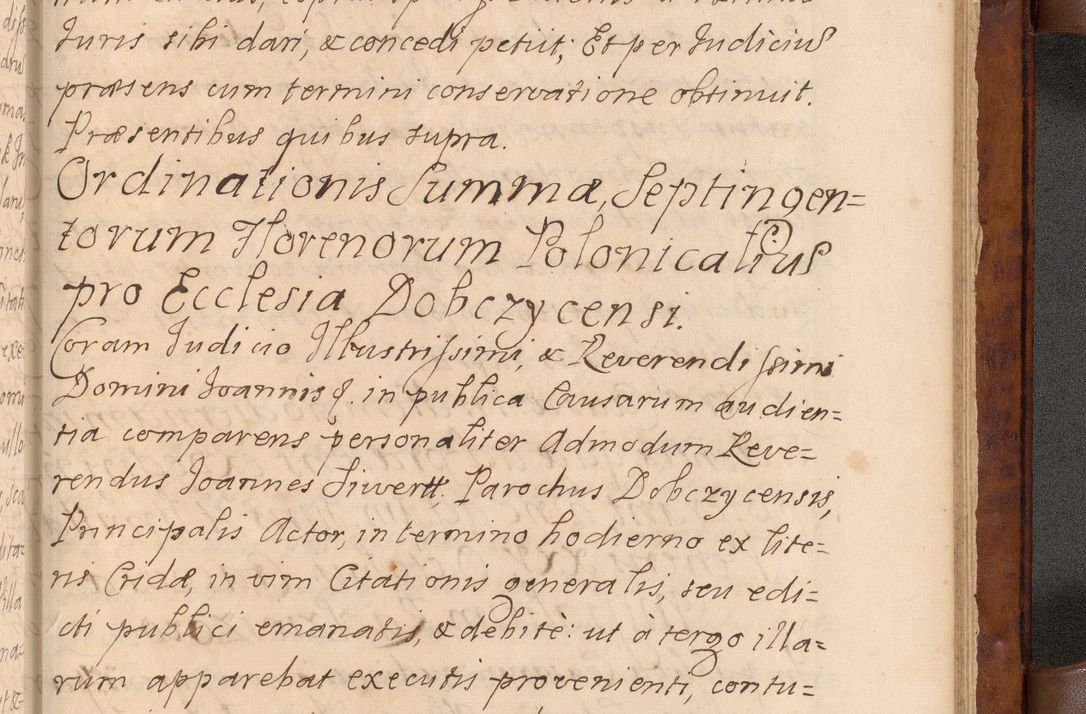 Juris sibi dari, & concedi petiit; Et per Judiciũ
præsens cum termini conservatione obtinuit.
Præsentibus quibus supra.
Ordinationis Summæ, Septingen=
torum Florenorum Polonicaliũ
pro Ecclesia Dobczycensi.
Coram Judicio Illustrissimi, & Reverendissimi
Domini Joannis &. in publica Causarum audien=
tia comparens personaliter Admodum Reve=
rendus Joannes Siwertt, Parochus Dobczycensis,
Principalis Actor, in termino hodierno ex lite=
ris Cridæ, in vim Citationis generalis, seu edi=
cti publici emanatis, & debitè: ut à tergo illa=
rum apparebat executis provenienti, contu=